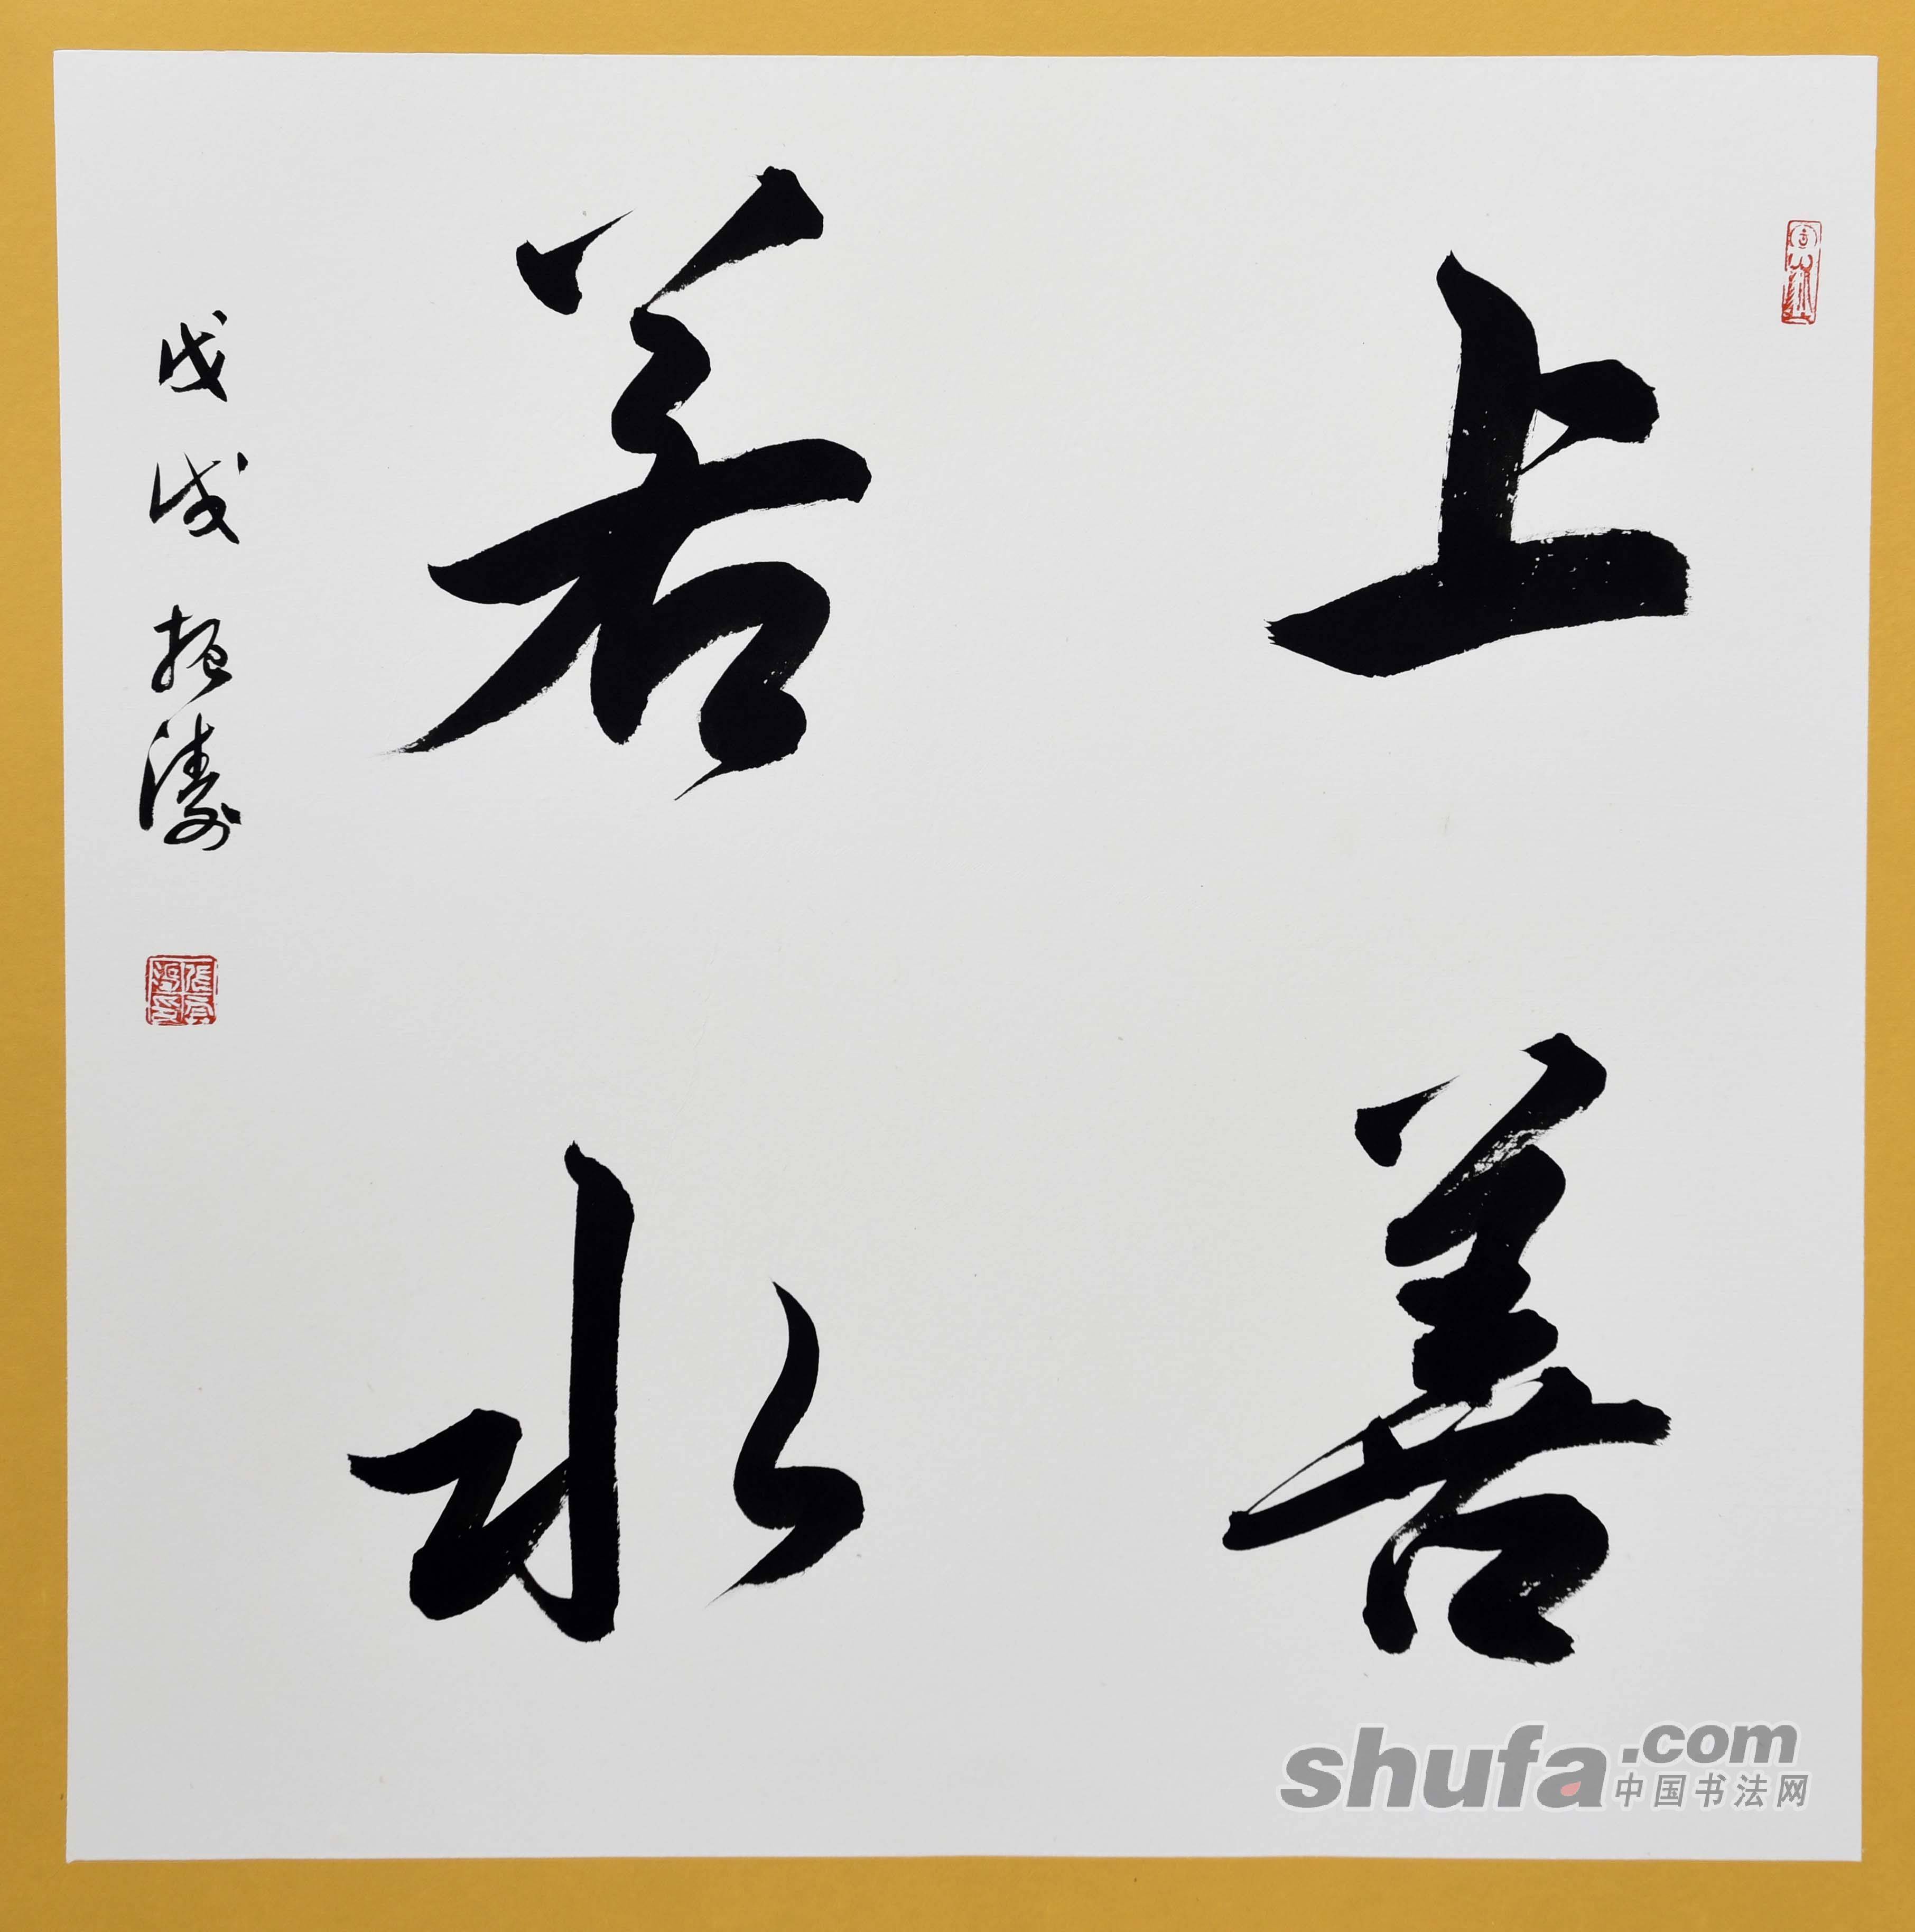 上善
若水
戊戌 振涛
shufa.com
中国书法网